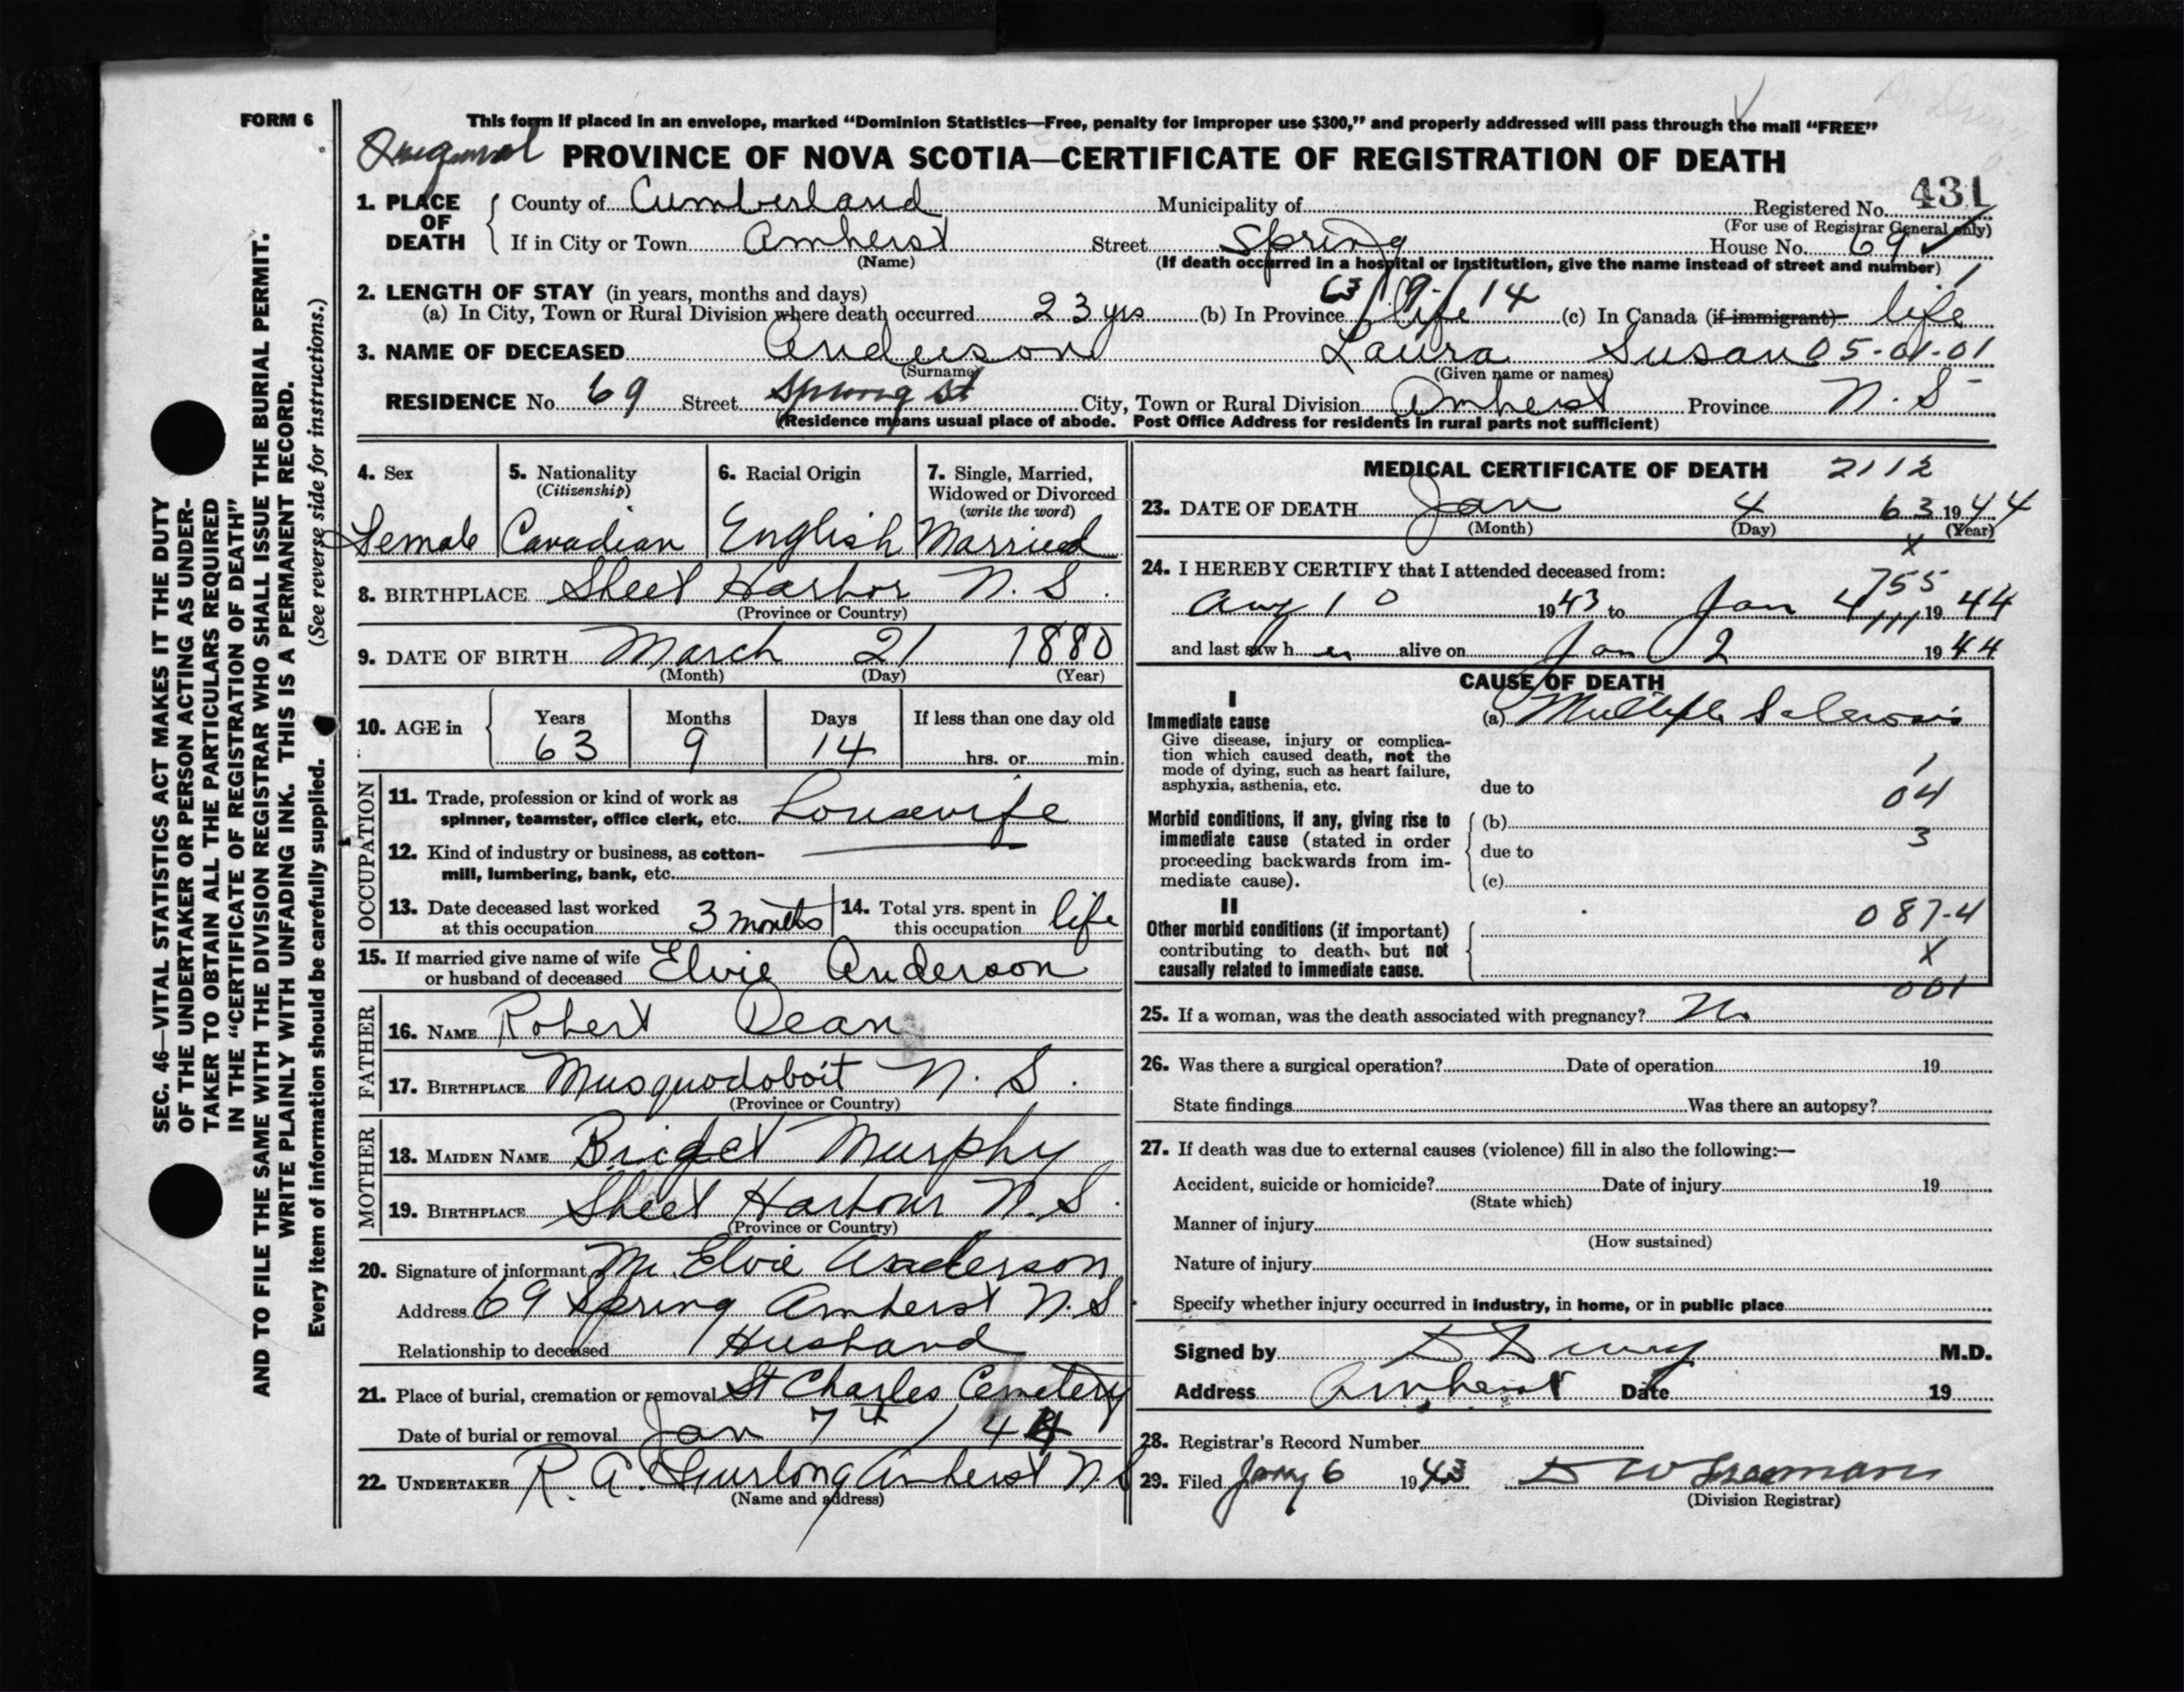 FORM 6
This form if placed in an envelope, marked "Dominion Statistics—Free, penalty for improper use $300," and properly addressed will pass through the mail "FREE"
PROVINCE OF NOVA SCOTIA—CERTIFICATE OF REGISTRATION OF DEATH
431
1. PLACE OF DEATH County of Cumberland Municipality of Registered No.
(For use of Registrar General only)
If in City or Town Amherst Street Spring House No. 69
(Name) (If death occurred in a hospital or institution, give the name instead of street and number)
2. LENGTH OF STAY (in years, months and days) 63 / 9 / 14
(a) In City, Town or Rural Division where death occurred 23 yrs (b) In Province life (c) In Canada (if immigrant) life
3. NAME OF DECEASED Anderson Laura Susan 05-01-01
(Surname) (Given name or names)
RESIDENCE No. 69 Street Spring St City, Town or Rural Division Amherst Province N. S
(Residence means usual place of abode. Post Office Address for residents in rural parts not sufficient)
SEC. 46—VITAL STATISTICS ACT MAKES IT THE DUTY
OF THE UNDERTAKER OR PERSON ACTING AS UNDER-
TAKER TO OBTAIN ALL THE PARTICULARS REQUIRED
IN THE "CERTIFICATE OF REGISTRATION OF DEATH"
AND TO FILE THE SAME WITH THE DIVISION REGISTRAR WHO SHALL ISSUE THE BURIAL PERMIT.
WRITE PLAINLY WITH UNFADING INK. THIS IS A PERMANENT RECORD.
Every item of information should be carefully supplied. (See reverse side for instructions.)
4. Sex 5. Nationality 6. Racial Origin 7. Single, Married,
(Citizenship) Widowed or Divorced
(write the word)
Female Canadian English Married
8. BIRTHPLACE Sheet Harbor N. S.
(Province or Country)
9. DATE OF BIRTH March 21 1880
(Month) (Day) (Year)
10. AGE in Years Months Days If less than one day old
63 9 14 hrs. or min.
OCCUPATION
11. Trade, profession or kind of work as
spinner, teamster, office clerk, etc. Housewife
12. Kind of industry or business, as cotton-
mill, lumbering, bank, etc.
13. Date deceased last worked
at this occupation 3 months
14. Total yrs. spent in
this occupation life
15. If married give name of wife
or husband of deceased Elvie Anderson
FATHER
16. NAME Robert Dean
17. BIRTHPLACE Musquodoboit N. S.
(Province or Country)
MOTHER
18. MAIDEN NAME Bridget Murphy
19. BIRTHPLACE Sheet Harbour N. S.
(Province or Country)
20. Signature of informant Mr. Elvie Anderson
Address 69 Spring Amherst N.S
Relationship to deceased Husband
21. Place of burial, cremation or removal St Charles Cemetery
Date of burial or removal Jan 7th / 44
22. UNDERTAKER R. A. Amherst N.S
(Name and address)
MEDICAL CERTIFICATE OF DEATH 2112
23. DATE OF DEATH Jan 4 63 1944
(Month) (Day) (Year)
x
24. I HEREBY CERTIFY that I attended deceased from: 755
Aug 10 1943 to Jan 4 111 1944
and last saw her alive on Jan 2 1944
CAUSE OF DEATH
I
Immediate cause (a) Multiple Sclerosis
Give disease, injury or complica-
tion which caused death, not the
mode of dying, such as heart failure,
asphyxia, asthenia, etc. due to
1
04
Morbid conditions, if any, giving rise to (b)
immediate cause (stated in order 3
proceeding backwards from im- due to
mediate cause). (c)
II
Other morbid conditions (if important) 087-4
contributing to death but not x
causally related to immediate cause.
001
25. If a woman, was the death associated with pregnancy? No
26. Was there a surgical operation? Date of operation 19
State findings Was there an autopsy?
27. If death was due to external causes (violence) fill in also the following:—
Accident, suicide or homicide? Date of injury 19
(State which)
Manner of injury
(How sustained)
Nature of injury
Specify whether injury occurred in industry, in home, or in public place
Signed by M.D.
Address Amherst Date 19
28. Registrar's Record Number
29. Filed Jany 6 1943
(Division Registrar)